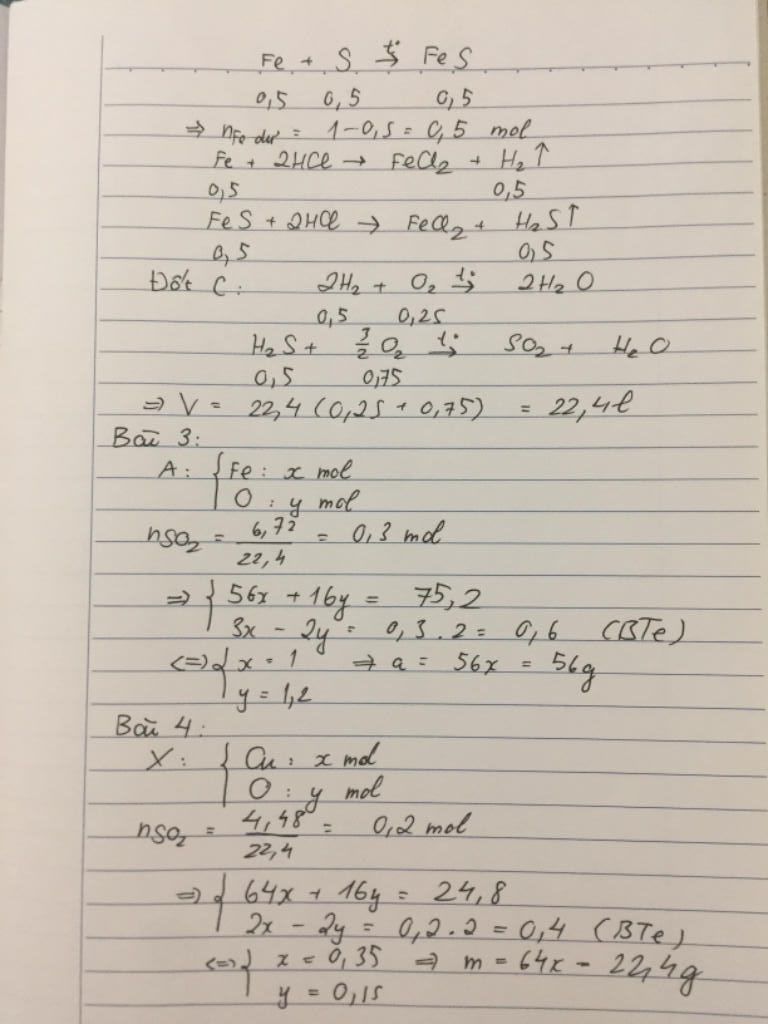 Fe + S t°→ FeS
0,5 0,5 0,5
⇒ nFe dư = 1-0,5 = 0,5 mol
Fe + 2HCl → FeCl2 + H2↑
0,5 0,5
FeS + 2HCl → FeCl2 + H2S↑
0,5 0,5
Đốt C: 2H2 + O2 t°→ 2H2O
0,5 0,25
H2S + 3/2 O2 t°→ SO2 + H2O
0,5 0,75
⇒ V = 22,4 (0,25 + 0,75) = 22,4l
Bài 3:
A: { Fe : x mol
O : y mol
nSO2 = 6,72/22,4 = 0,3 mol
⇒ { 56x + 16y = 75,2
3x - 2y = 0,3.2 = 0,6 (BTe)
⇔ { x = 1 ⇒ a = 56x = 56g
y = 1,2
Bài 4:
X: { Cu : x mol
O : y mol
nSO2 = 4,48/22,4 = 0,2 mol
⇒ { 64x + 16y = 24,8
2x - 2y = 0,2.2 = 0,4 (BTe)
⇔ { x = 0,35 ⇒ m = 64x - 22,4g
y = 0,15